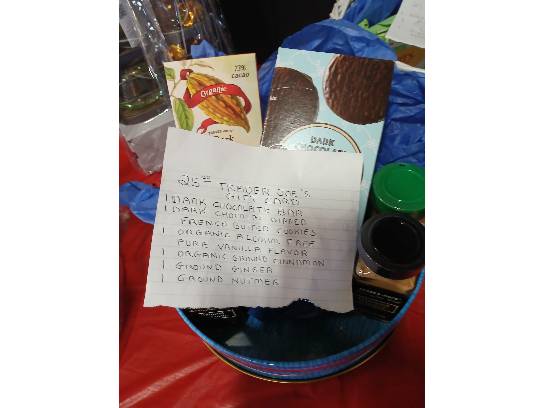 73%
cacao
Organic
Dark
DARK
CHOCOLATE
25.00 TRADER JOE'S
GIFT CARD
1 DARK CHOCOLATE BAR
1 DARK CHOCOLATE DIPPED
FRENCH BUTTER COOKIES
1 ORGANIC ALCOHOL FREE
PURE VANILLA FLAVOR
1 ORGANIC GROUND CINNAMON
1 GROUND GINGER
1 GROUND NUTMEG